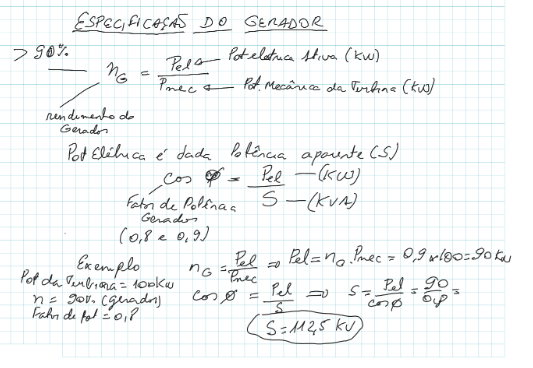 ESPECIFICAÇÃO DO GERADOR
> 90%
nG = Pel ← Pot eletrica Ativa (KW)
Pmec ← Pot. Mecânica da Turbina (KW)
rendimento do
Gerador
Pot Elétrica é dada Potência aparente (S)
cos φ = Pel — (KW)
S — (KVA)
Fator de Potência
Gerador
(0,8 e 0,9)
Exemplo
Pot da Turbina = 100KW
n = 90% (gerador)
Fator de pot = 0,8
nG = Pel/Pmec ⇒ Pel = nG . Pmec = 0,9 x 100 = 90 KW
cos φ = Pel/S ⇒ S = Pel/cosφ = 90/0,8 =
S = 112,5 KV